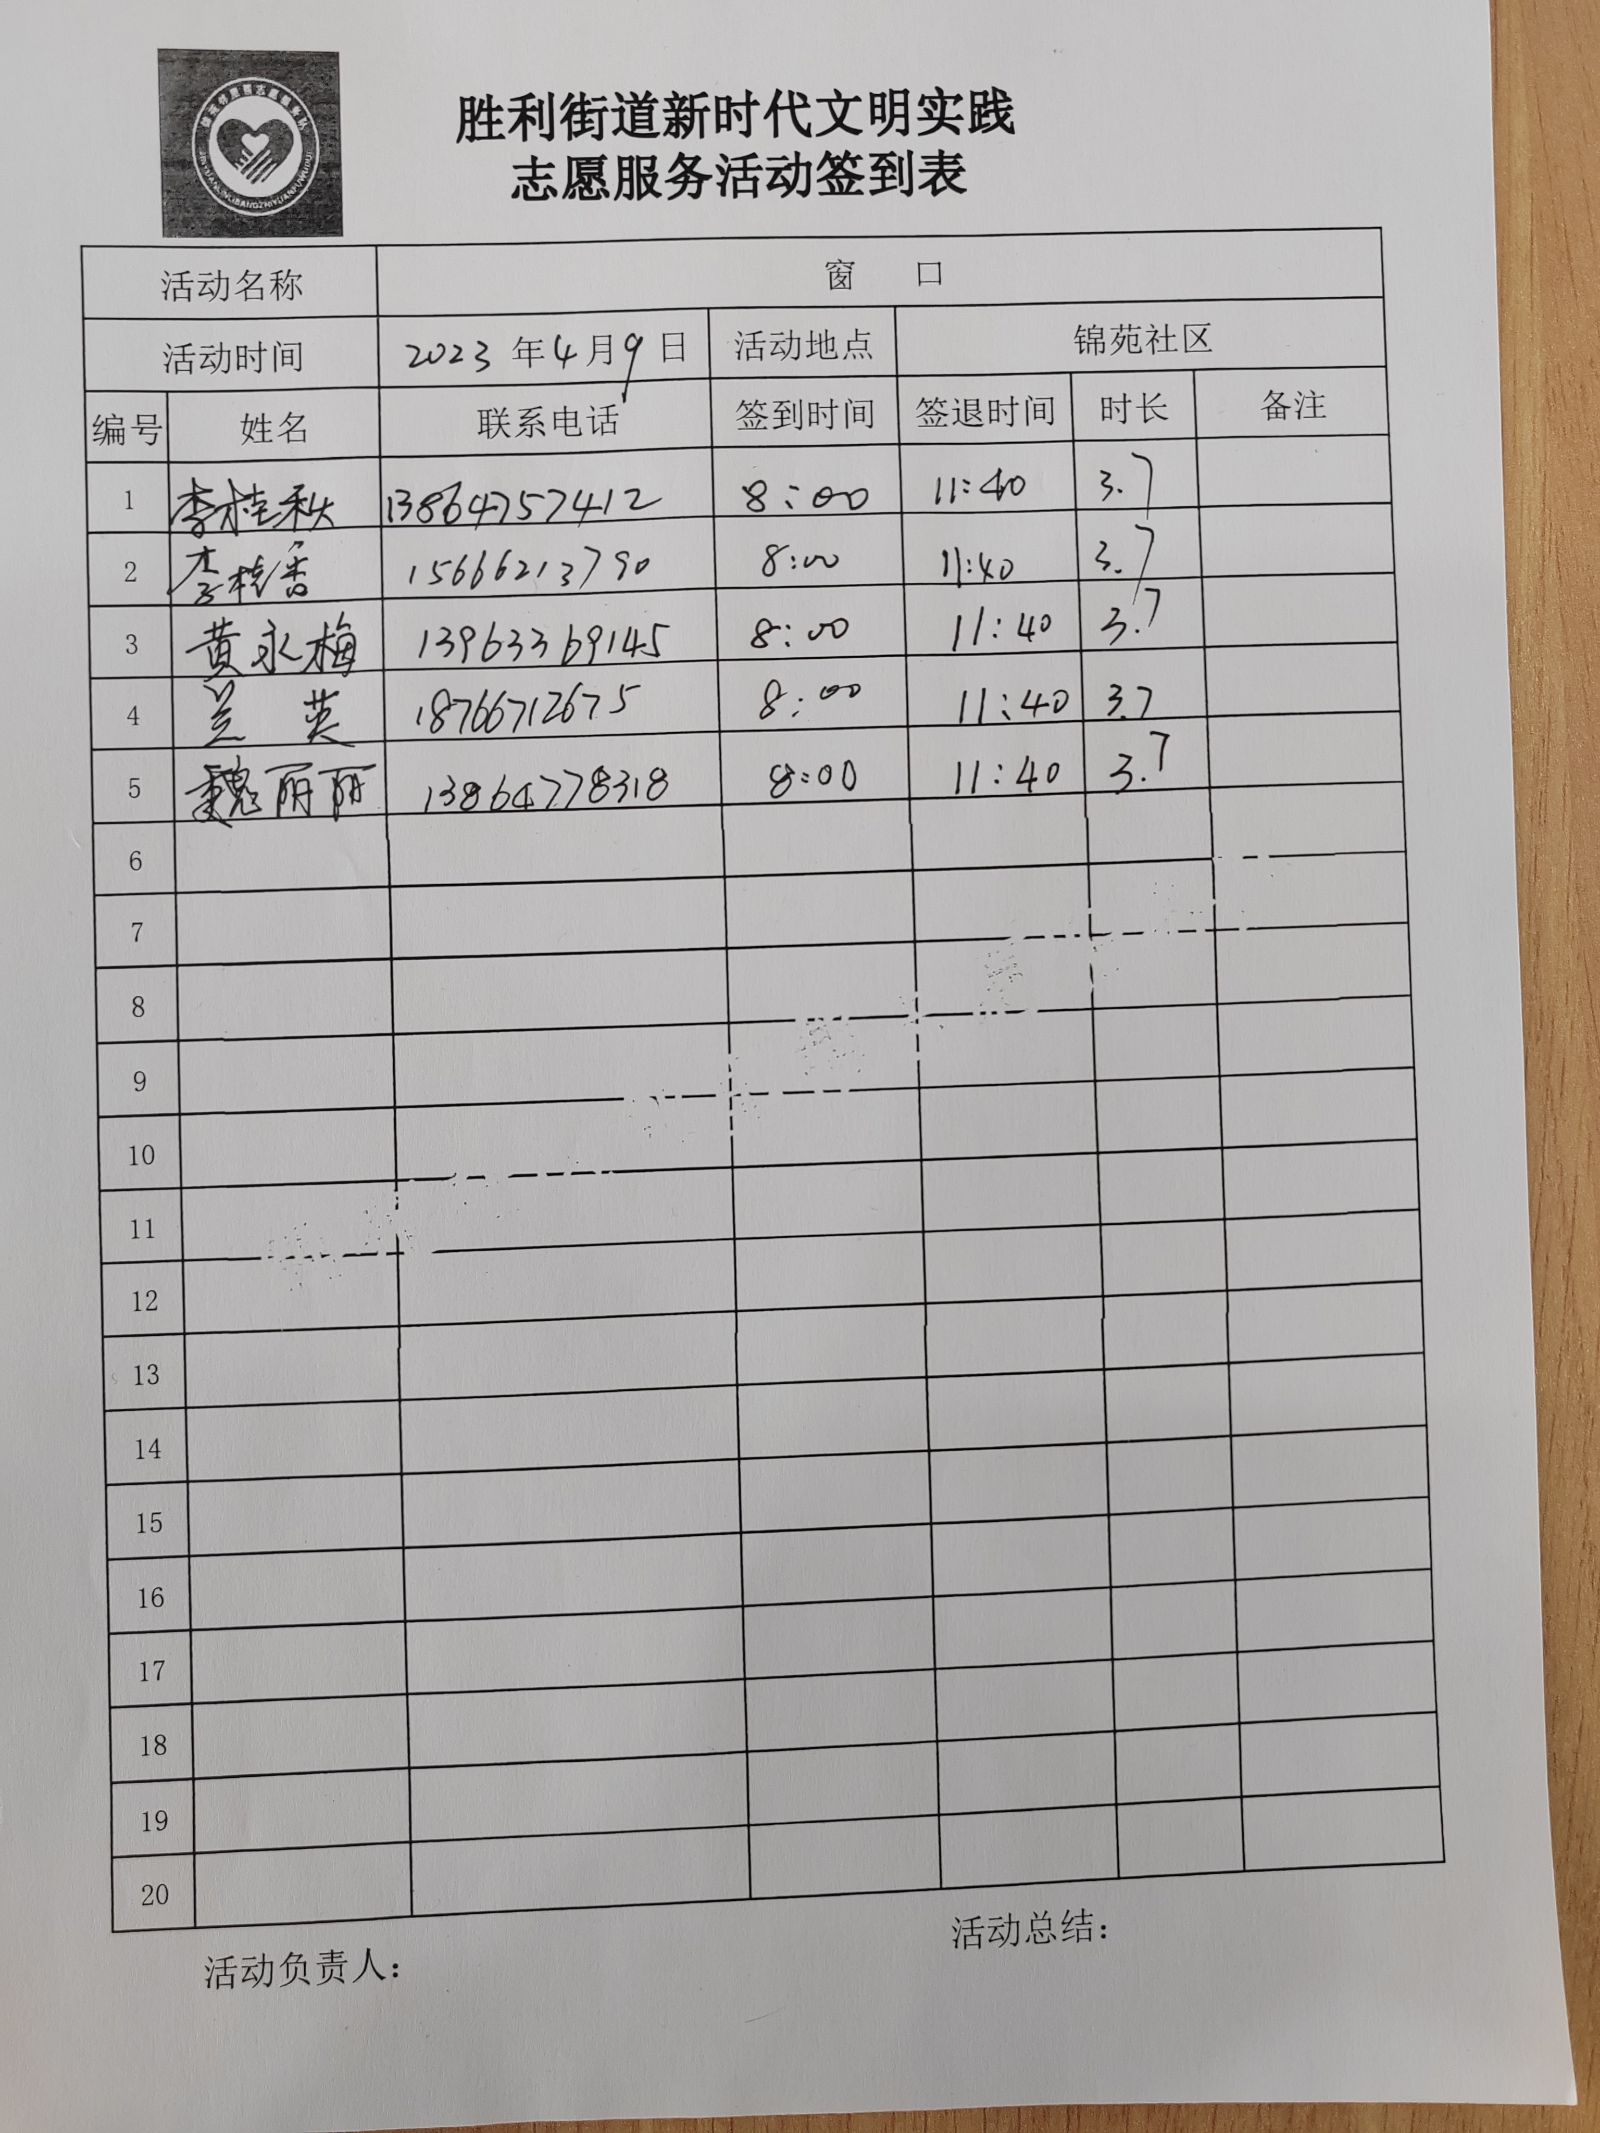 胜利街道新时代文明实践
志愿服务活动签到表
活动名称 窗 口
活动时间 2023 年 4 月 9 日 活动地点 锦苑社区
编号 姓名 联系电话 签到时间 签退时间 时长 备注
1 李桂秋 13864757412 8:00 11:40 3.7
2 李桂香 15666213790 8:00 11:40 3.7
3 黄永梅 13963369145 8:00 11:40 3.7
4 兰 英 18766712675 8:00 11:40 3.7
5 魏丽丽 13864778318 8:00 11:40 3.7
6
7
8
9
10
11
12
13
14
15
16
17
18
19
20
活动负责人： 活动总结：